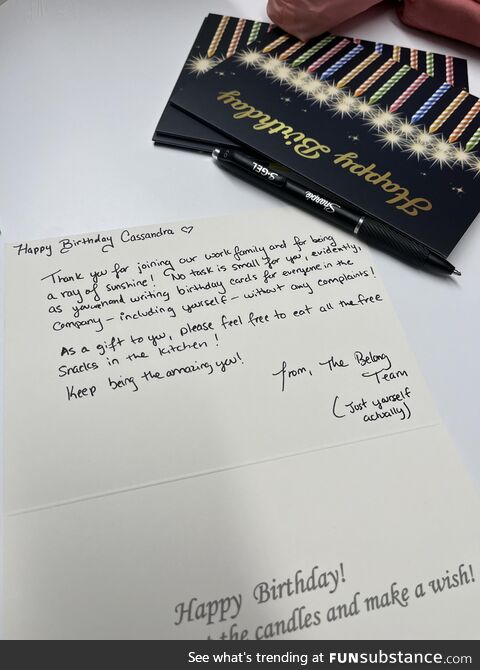 Happy Birthday
S·GEL
Sharpie
Happy Birthday Cassandra ♡
Thank you for joining our work family and for being
a ray of sunshine! No task is small for you, evidently,
as you hand writing birthday cards for everyone in the
company – including yourself – without any complaints!
As a gift to you, please feel free to eat all the free
snacks in the kitchen!
Keep being the amazing you!
from, The Belong
Team
(Just yourself
actually)
Happy Birthday!
the candles and make a wish!
See what's trending at FUNsubstance.com